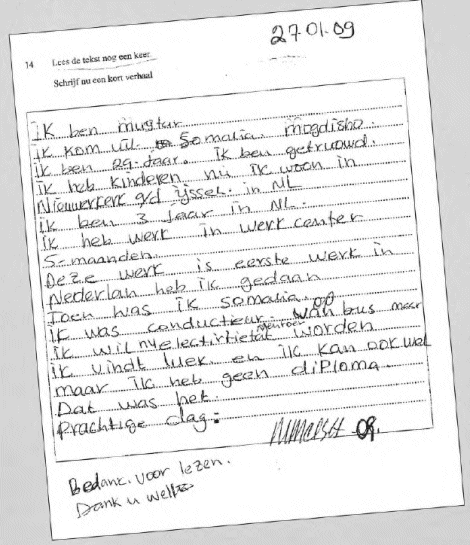 27 01.09
14 Lees de tekst nog een keer.
Schrijf nu een kort verhaal
ik ben mugtar
ik kom uit Somalia. mogdisho.
ik ben 29. Jaar. ik ben getruowd.
ik heb kinderen nu ik woon in
Nieuwerkerk a/d ijssel. in NL
ik ben 3 Jaar in NL.
ik heb werk in werk center
5-maanden.
Deze werk is eerste werk in
Nederlan heb ik gedaan
Toen was ik somalia.
ik was conducteur. van bus maar
ik wil worden
ik vindt luek. en ik kan ook wel
maar ik heb geen diploma.
Dat was het.
Prachtige dag:
09.
Bedank. voor lezen.
Dank u wel